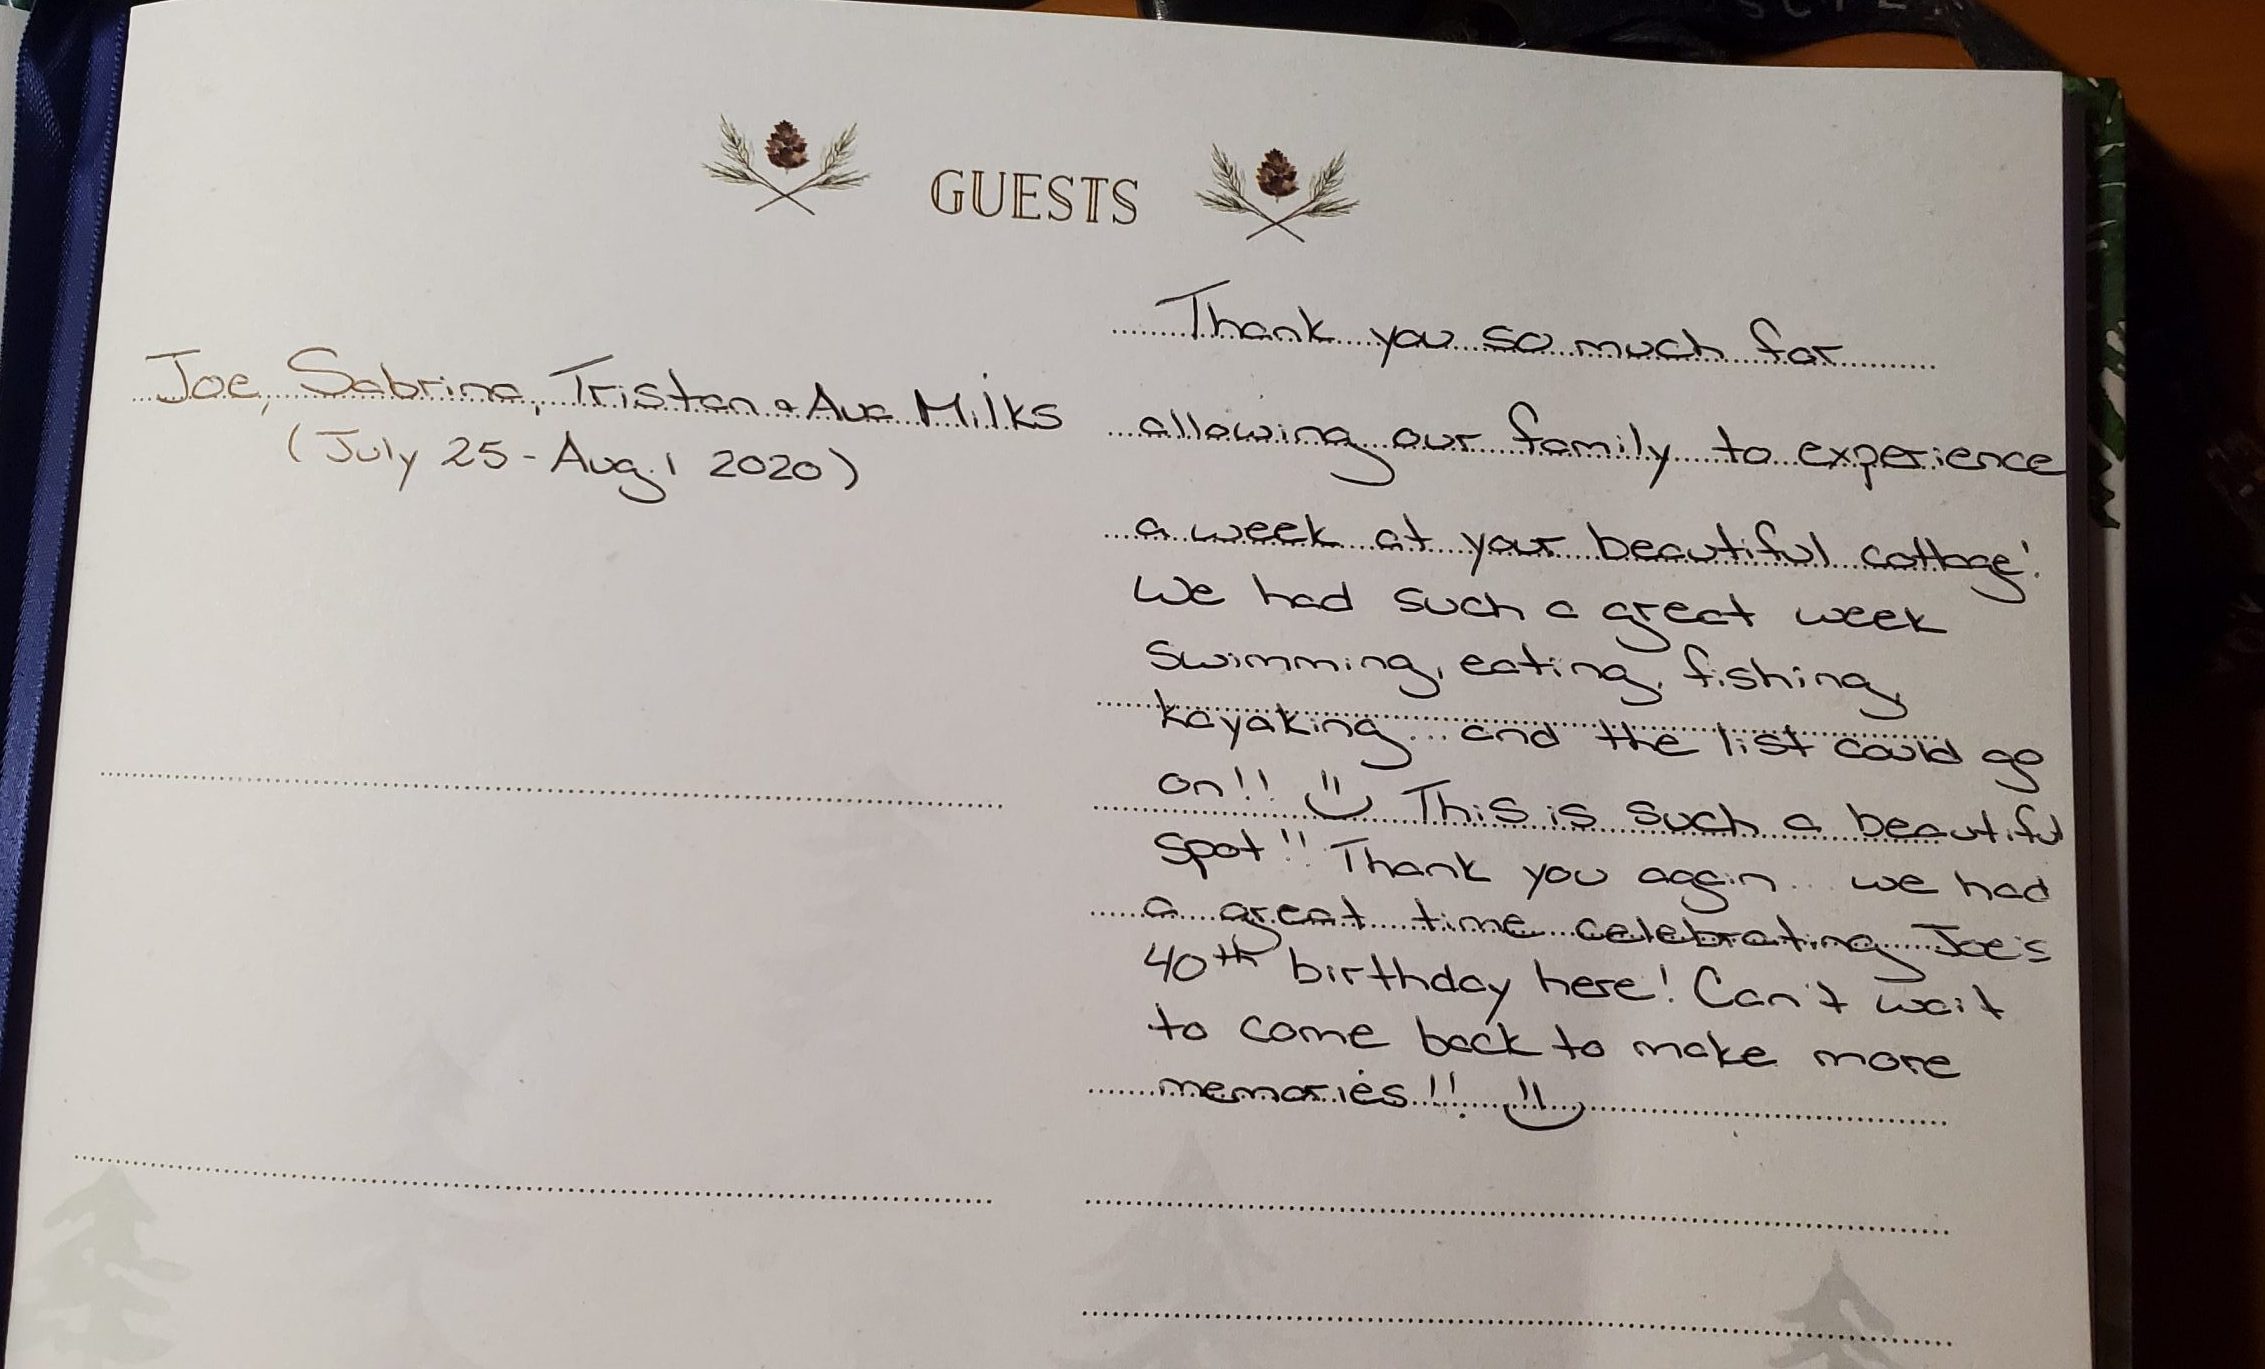 GUESTS
Joe, Sabrina, Tristan & Ava Milks
(July 25 - Aug. 1 2020)
Thank you so much for
allowing our family to experience
a week at your beautiful cottage!
We had such a great week
swimming, eating, fishing,
kayaking... and the list could go
on!! This is such a beautiful
spot!! Thank you again... we had
a great time celebrating Joe's
40th birthday here! Can't wait
to come back to make more
memories!!